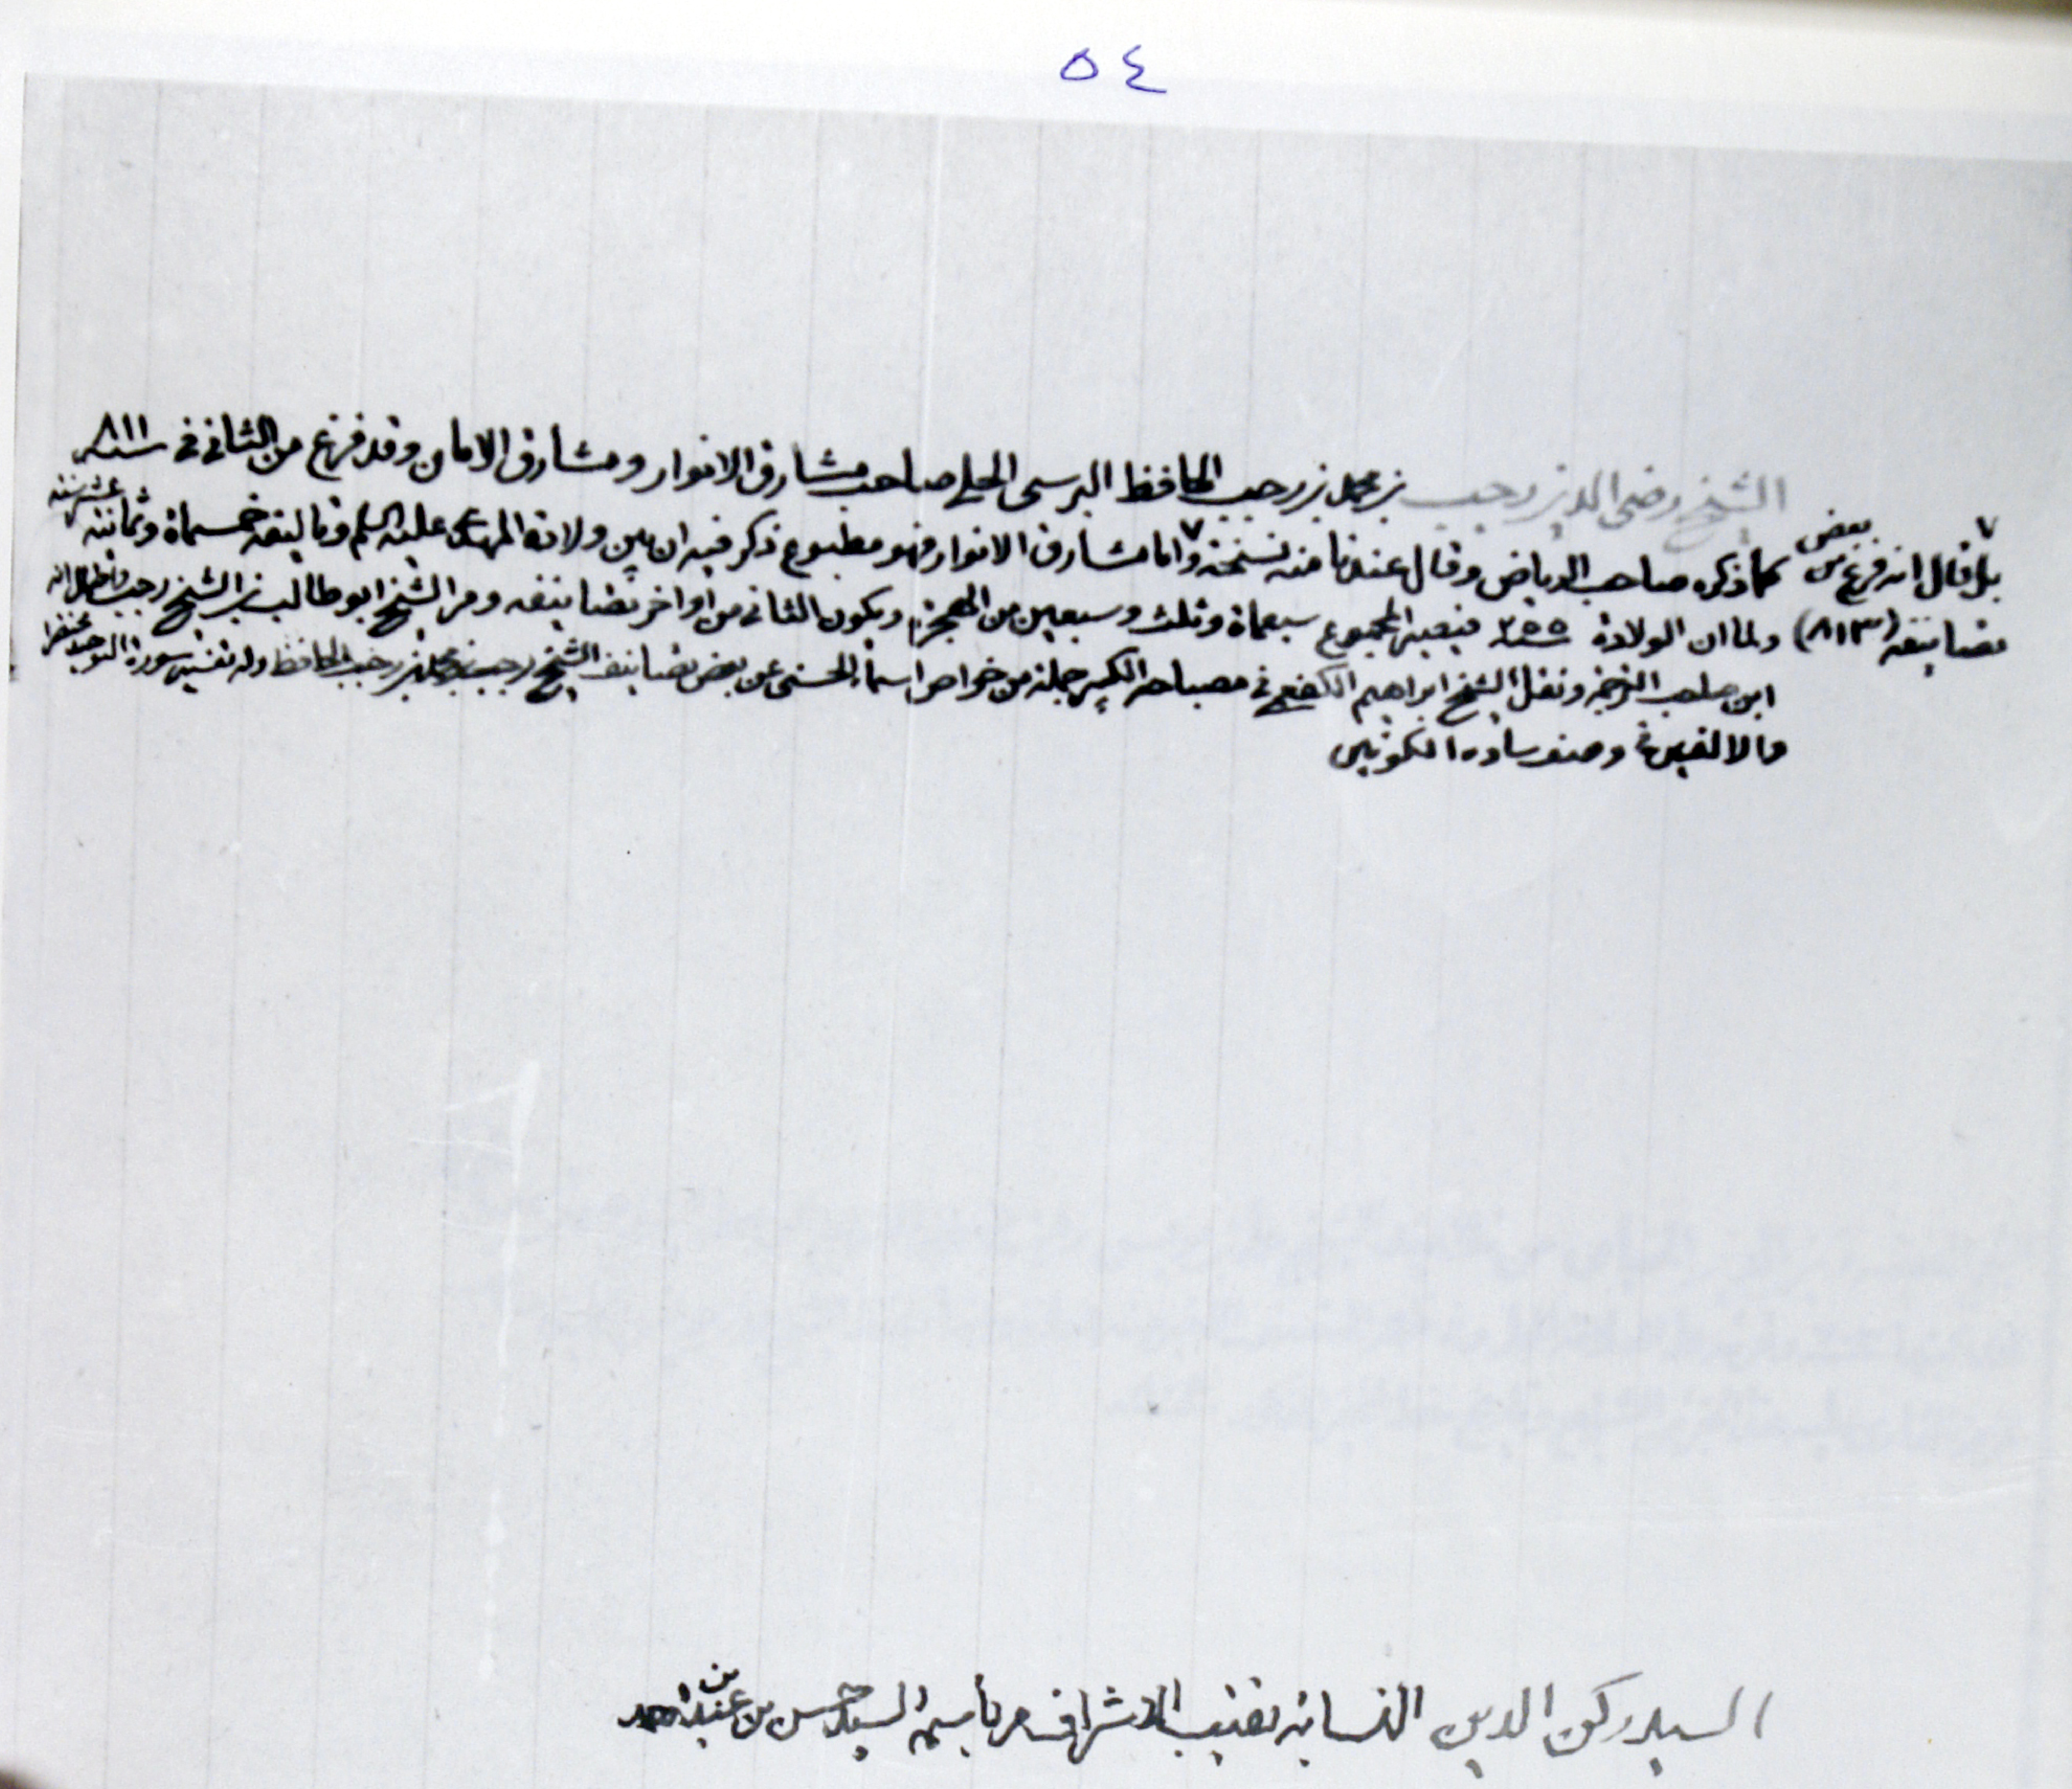 ٥٤
الشيخ رضي الدين رجب بن محمد بن رجب الحافظ البرسي الحلي صاحب مشارق الانوار ومشارق الامان وقد فرغ من الثاني في سنة ٨١١
كما ذكره صاحب الرياض وقال عندنا منه نسخة واما مشارق الانوار فهو مطبوع ذكر فيه ان بين ولادة المهدي عليه السلم وتاليفه خمسمأة وثمانية عشر سنة
ولما ان الولادة ٢٥٥ فيصير المجموع سبعمأة وثلث وسبعين من الهجرة ويكون الثاني من اواخر تصانيفه ومر الشيخ ابو طالب بن الشيخ رجب
ابن صاحب الترجمة ونقل الشيخ ابراهيم الكفعمي في مصباحه الكبير جملة من خواص اسماء الحسنى عن بعض تصانيف الشيخ رجب بن محمد بن رجب الحافظ وله تفسير سورة التوحيد مختصرا
والالفين في وصف سادة الكونين
بل قال انه فرغ من بعض
تصانيفه (٨١٣)
السيد ركن الدين النسابة نقيب الاشراف مر باسمه السيد حسن بن